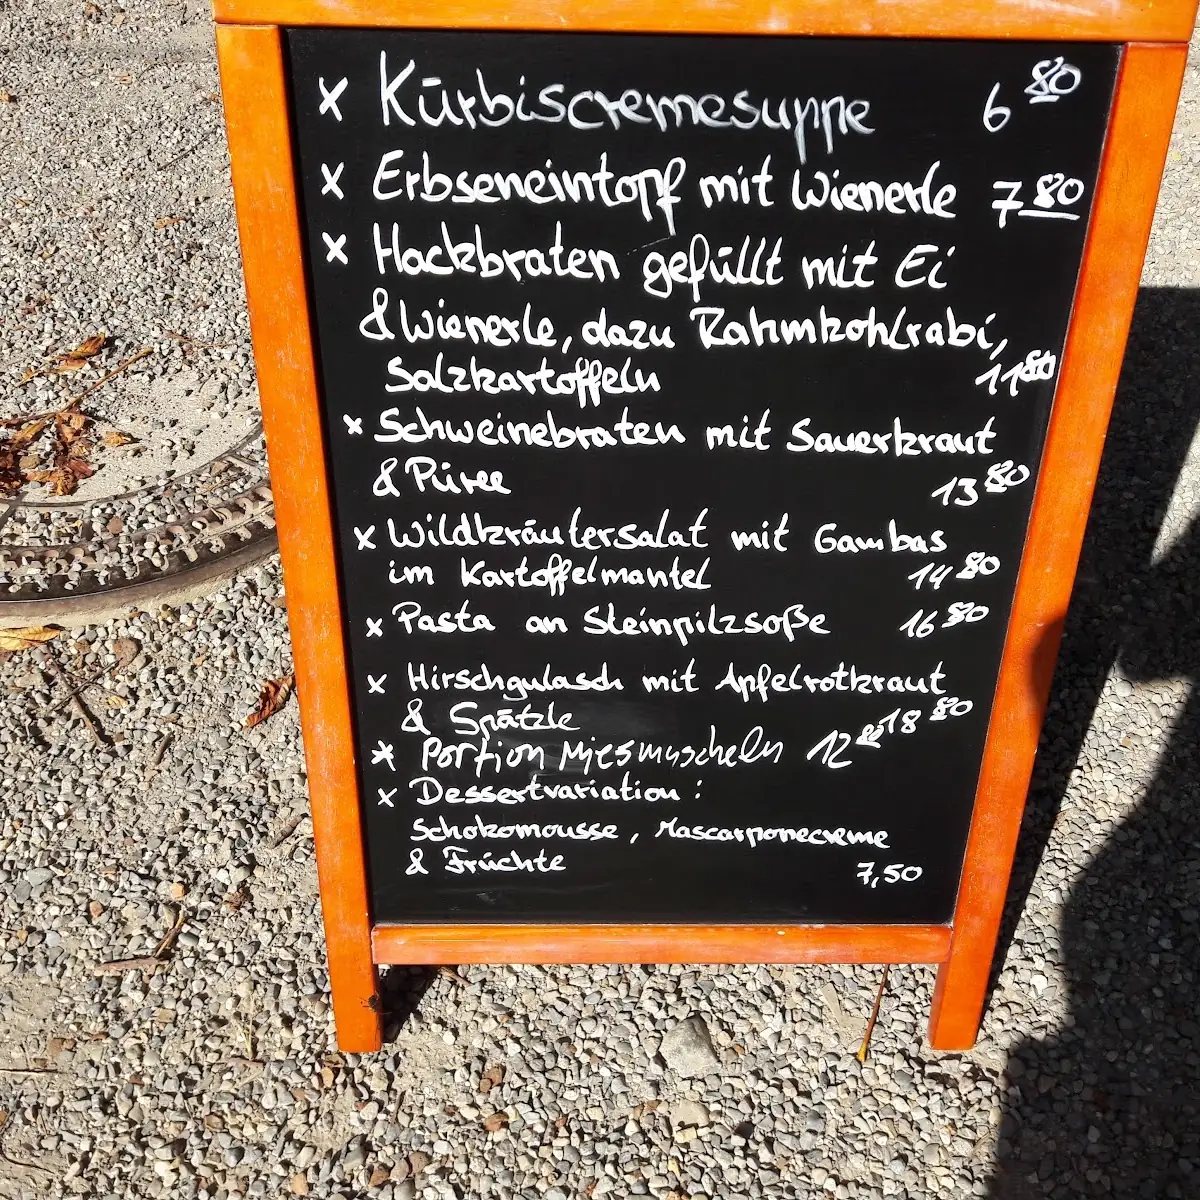 x Kürbiscremesuppe 6 80
x Erbseneintopf mit Wienerle 7 80
x Hackbraten gefüllt mit Ei
& Wienerle, dazu Rahmkohlrabi,
Salzkartoffeln 11 80
x Schweinebraten mit Sauerkraut
& Püree 13 80
x Wildkräutersalat mit Gambas
im Kartoffelmantel 14 80
x Pasta an Steinpilzsoße 16 80
x Hirschgulasch mit Apfelrotkraut
& Spätzle 18 80
x Portion Miesmuscheln 12 80
x Dessertvariation :
Schokomousse, Mascarponecreme
& Früchte 7,50